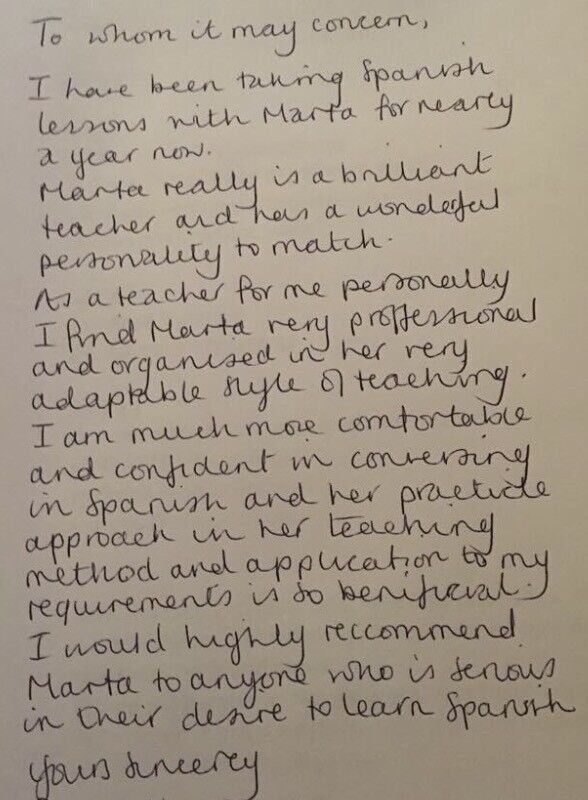 To whom it may concern,
I have been taking Spanish
lessons with Marta for nearly
a year now.
Marta really is a brilliant
teacher and has a wonderful
personality to match.
As a teacher for me personally
I find Marta very proffessional
and organised in her very
adaptable style of teaching.
I am much more comfortable
and confident in conversing
in Spanish and her practicle
approach in her teaching
method and application to my
requirements is so benificial.
I would highly reccommend
Marta to anyone who is serious
in their desire to learn Spanish
Yours sincerely